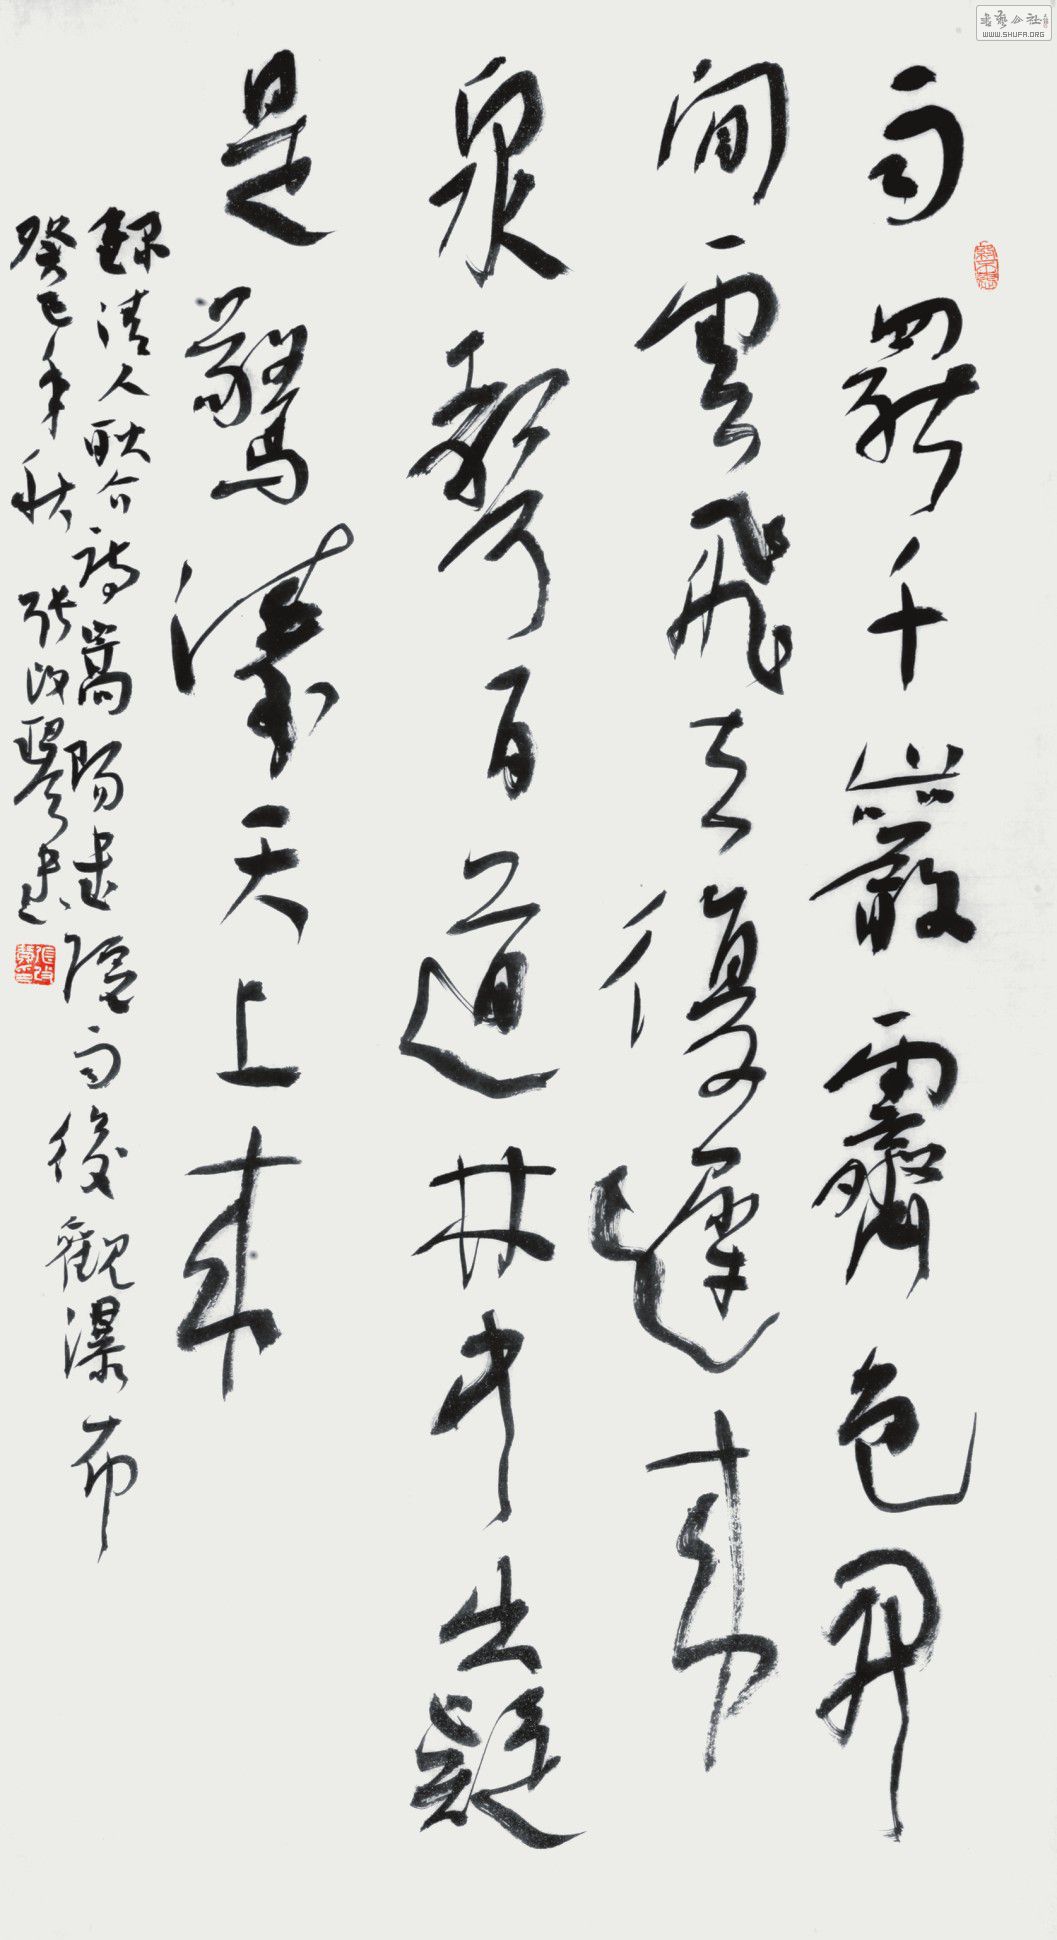 雨罷千巖霽色開
閒雲飛去復遲來
泉聲百道林中出疑
是驚濤天上來
錄清人耿介詩嵩陽書院雨後觀瀑布
癸巳年秋張改琴書
书艺公社
WWW.SHUFA.ORG